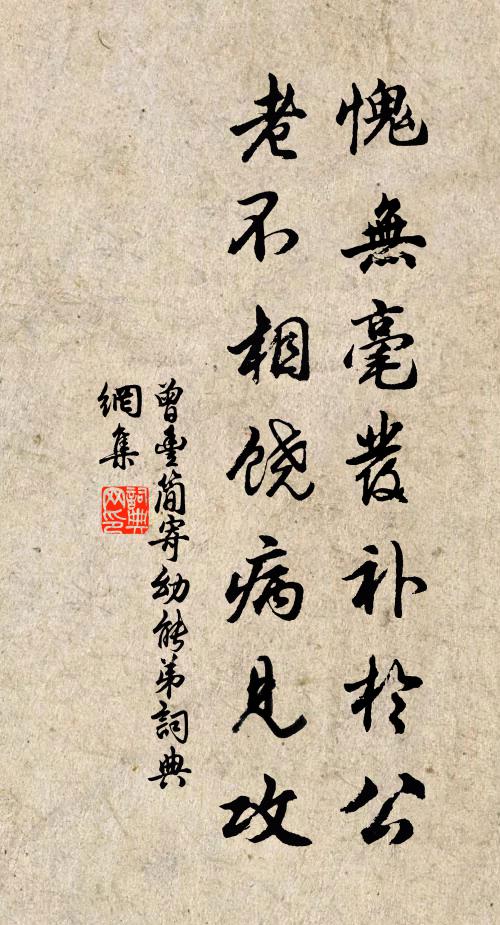 愧無毫發补於公
老不相饶病見攻
曾豐简寄幼能弟詞典
網集
詞典
网印